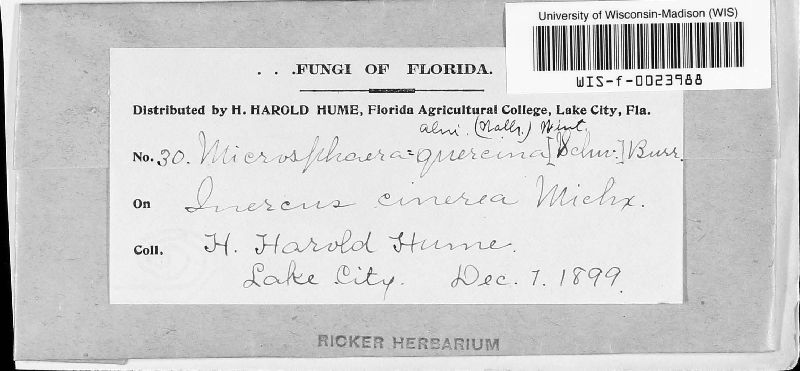 University of Wisconsin-Madison (WIS)
WIS-f-0023988
. . .FUNGI OF FLORIDA.
Distributed by H. HAROLD HUME, Florida Agricultural College, Lake City, Fla.
alni. (Wallr.) Wint.
No. 30. Microsphaera quercina [Schw.] Burr.
On Quercus cinerea Michx.
Coll. H. Harold Hume.
Lake City. Dec. 7. 1899.
RICKER HERBARIUM